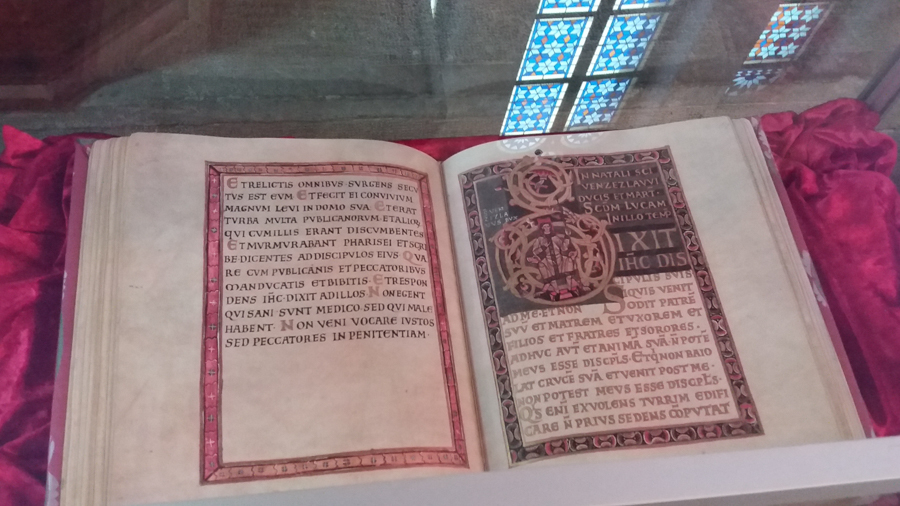 ET RELICTIS OMNIBUS SURGENS SECU
TUS EST EUM ET FECIT EI CONVIVIUM
MAGNUM LEVI IN DOMO SUA ET ERAT
TURBA MULTA PUBLICANORUM ET ALIOR
QUI CUM ILLIS ERANT DISCUMBENTES
ET MURMURABANT PHARISEI ET SCRI
BE DICENTES AD DISCIPULOS EIUS QUA
RE CUM PUBLICANIS ET PECCATORIBUS
MANDUCATIS ET BIBITIS · ET RESPON
DENS IHC · DIXIT AD ILLOS NON EGENT
QUI SANI SUNT MEDICO · SED QUI MALE
HABENT · NON VENI VOCARE IUSTOS
SED PECCATORES IN PENITENTIAM ·
IN NATALI SCI
VENZEZLAVVI
DUCIS ET MART ·
SCDM LUCAM
IN ILLO TEMP
DIXIT
IHC DIS
CIPULIS SUIS
SIQUIS VENIT
AD ME · ET NON SODIT PATRE
SUU ET MATREM ET UXOREM ET
FILIOS ET FRATRES ET SORORES ·
ADHUC AUT ET ANIMA SUA · N POTE
MEUS ESSE DISCPLS · ET Q NON BAIO
LAT CRUCE SUA ET VENIT POST ME ·
NON POTEST MEUS ESSE DISCPLS ·
QS ENI EX VOLENS TURRIM EDIFI
CARE N PRIUS SEDENS COPUTAT